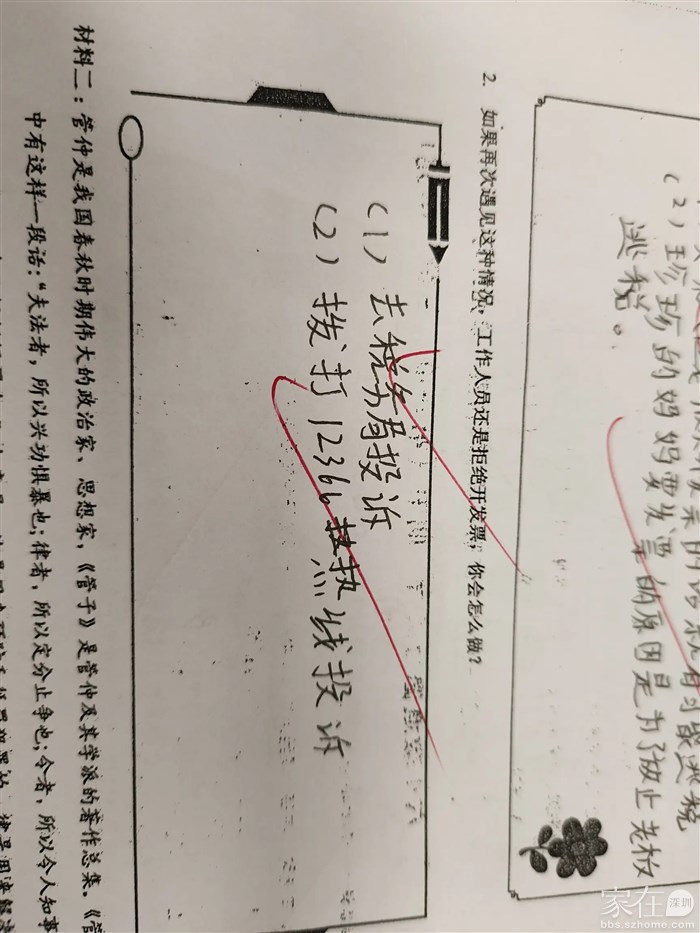 (2)珍珍的妈妈要发票的原因是为了防止老板
逃税。
2. 如果再次遇见这种情况,工作人员还是拒绝开发票,你会怎么做?
(1)去税务局投诉
(2)拨打12366热线投诉
材料二:管仲是我国春秋时期伟大的政治家、思想家,《管子》是管仲及其学派的著作总集。《管
中有这样一段话:“夫法者,所以兴功惧暴也;律者,所以定分止争也;令者,所以令人知事
家在深圳
bbs.szhome.com